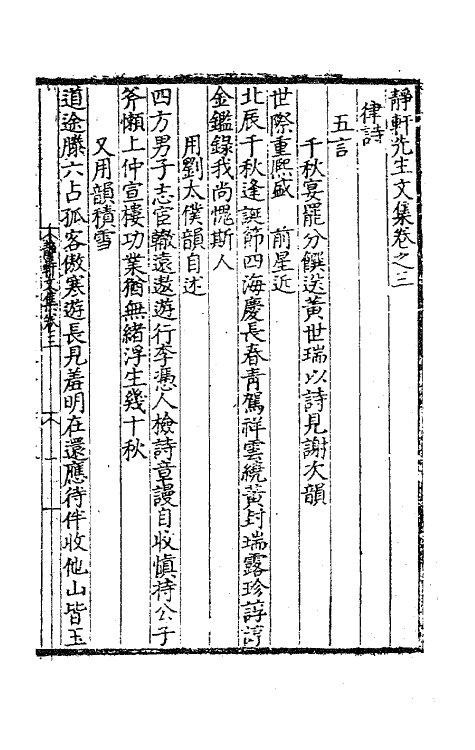 靜軒先生文集卷之三
律詩
五言
千秋宴罷分饌送黃世瑞以詩見謝次韻
世際重熙盛　前星近
北辰千秋逢誕節四海慶長春青駕祥雲繞黃封瑞露珍諄諄
金鑑錄我尚愧斯人
用劉太僕韻自述
四方男子志宦轍遠遨遊行李憑人檢詩章謾自收慎持公子
斧懶上仲宣樓功業猶無緒浮生幾十秋
又用韻積雪
道途滕六占孤客傲寒遊長見羞明在還應待伴收他山皆玉
靜軒文集卷三